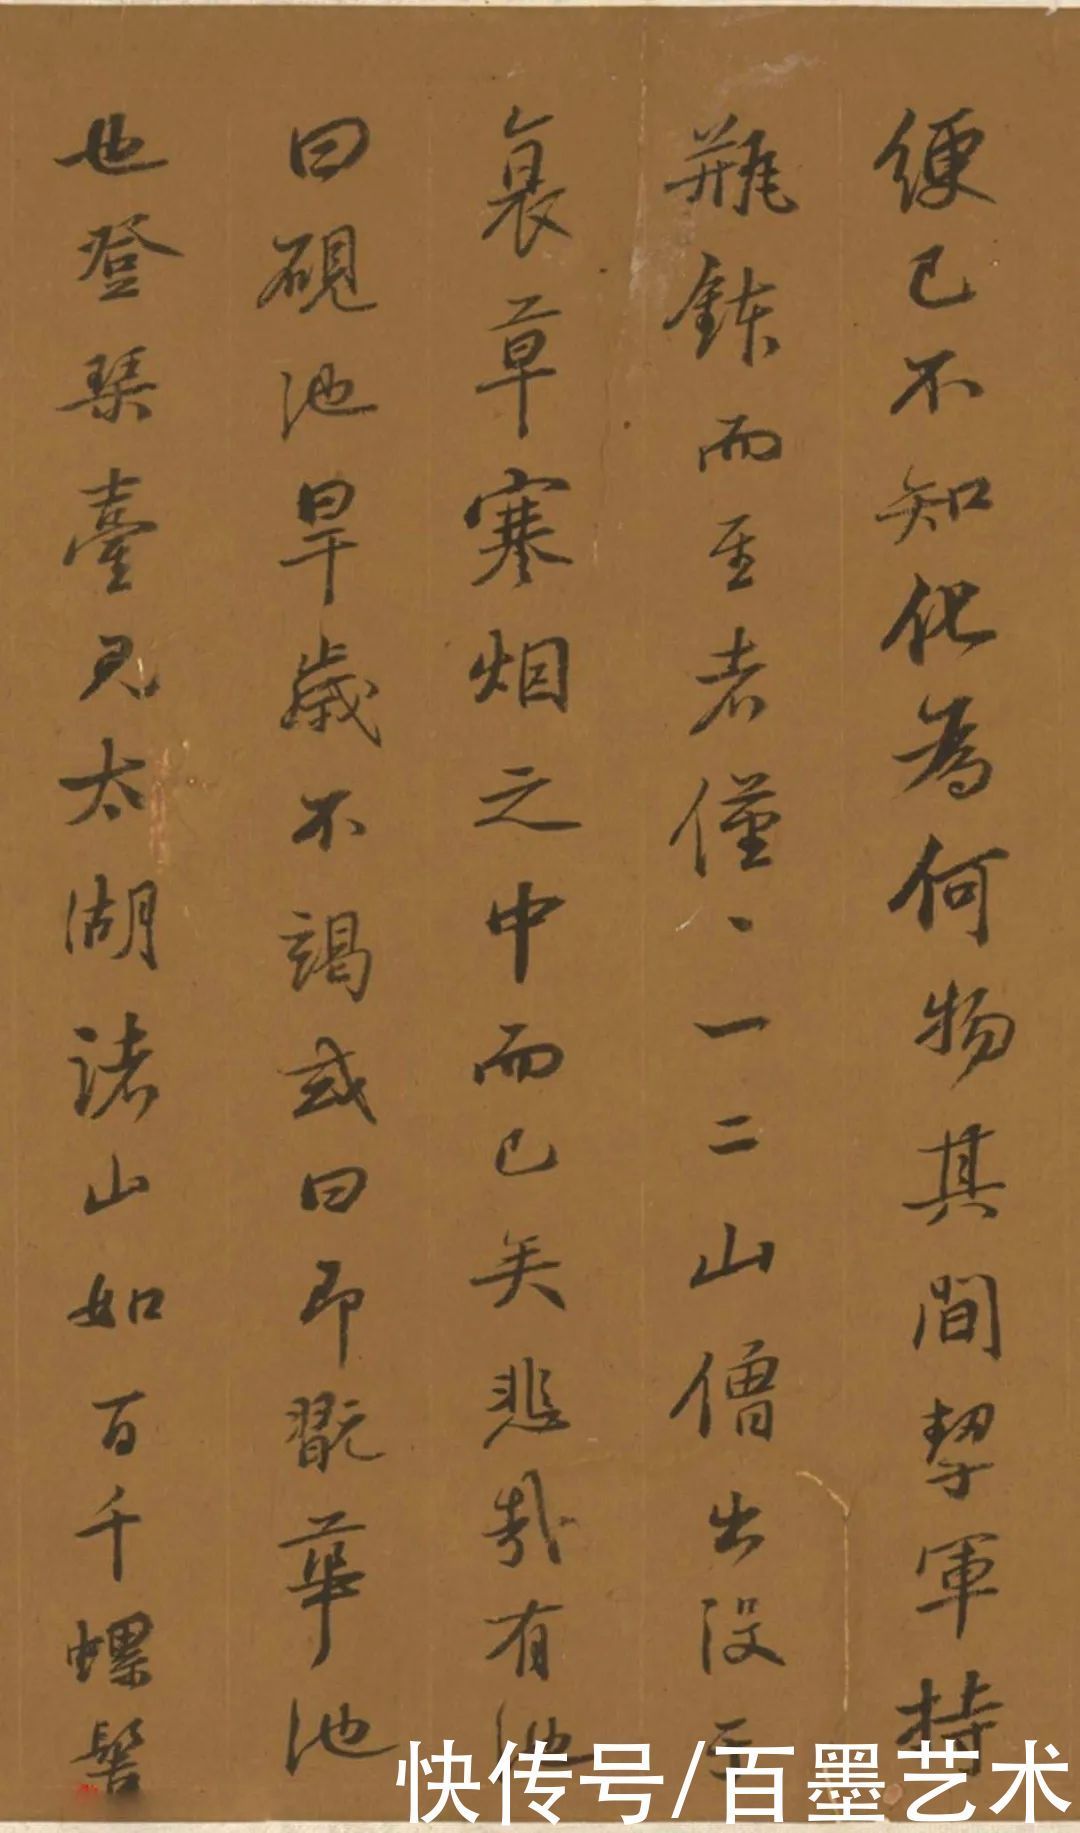 緶已不知化為何物其間挈軍持
瓶鉢而至者僅、一二山僧出沒于
衰草寒烟之中而已矣悲哉有池
曰硯池旱歲不竭或曰即翫華池
也登琴臺見太湖諸山如百千螺髻
快传号/百墨艺术